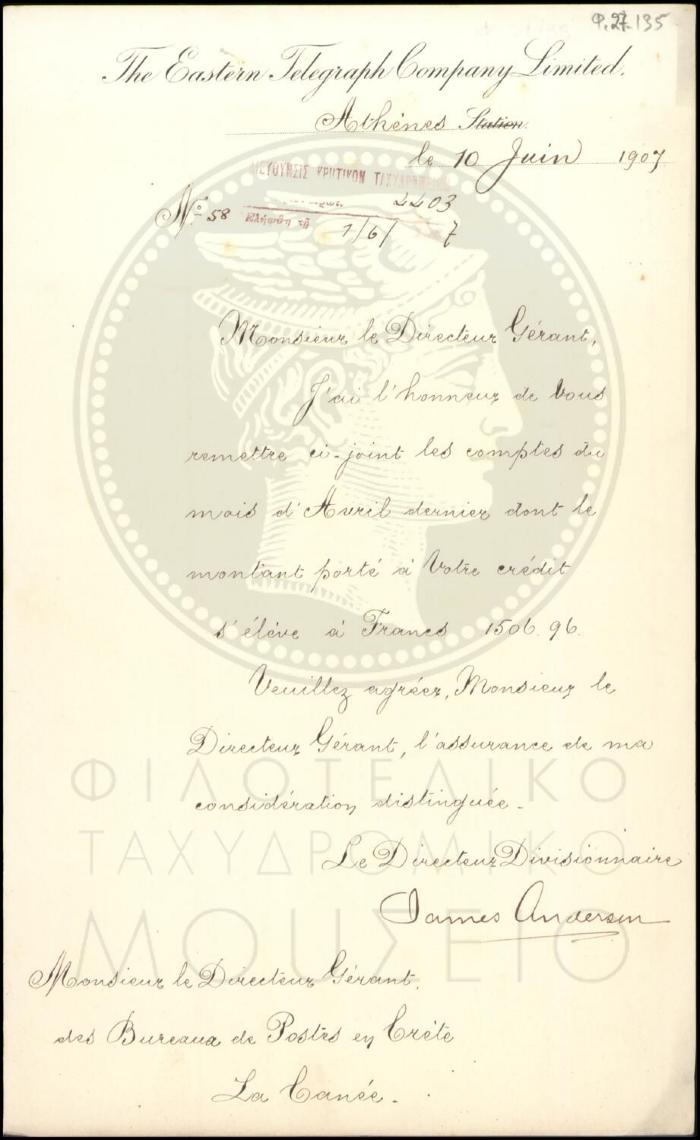 Φ.27.135
The Eastern Telegraph Company Limited.
Athènes Station.
le 10 Juin 1907
ΚΡΗΤΙΚΩΝ
No 58
2203
Ελήφθη τῇ 1/6/ 7
Monsieur le Directeur Gérant,
J'ai l'honneur de Vous
remettre ci-joint les comptes du
mois d'Avril dernier dont le
montant porté à Votre crédit
s'élève à Francs 1506.96.
Veuillez agréer, Monsieur le
Directeur Gérant, l'assurance de ma
considération distinguée.
Le Directeur Divisionnaire
James Anderson
Monsieur le Directeur Gérant.
des Bureaux de Postes en Crète
La Canée.
ΦΙΛΟΤΕΛΙΚΟ
ΤΑΧΥΔΡΟΜΙΚΟ
ΜΟΥΣΕΙΟ